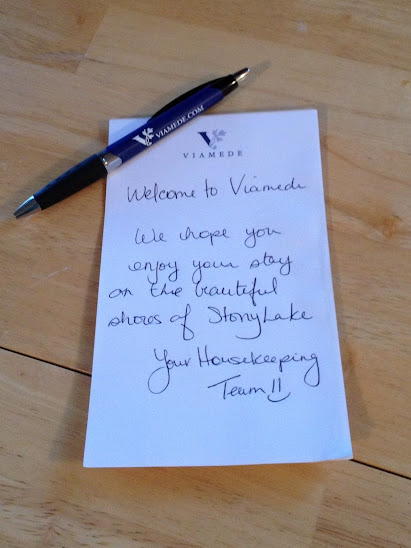 VIAMEDE.COM
VIAMEDE
Welcome to Viamede
We hope you
enjoy your stay
on the beautiful
shores of Stony Lake
Your Housekeeping
Team!!